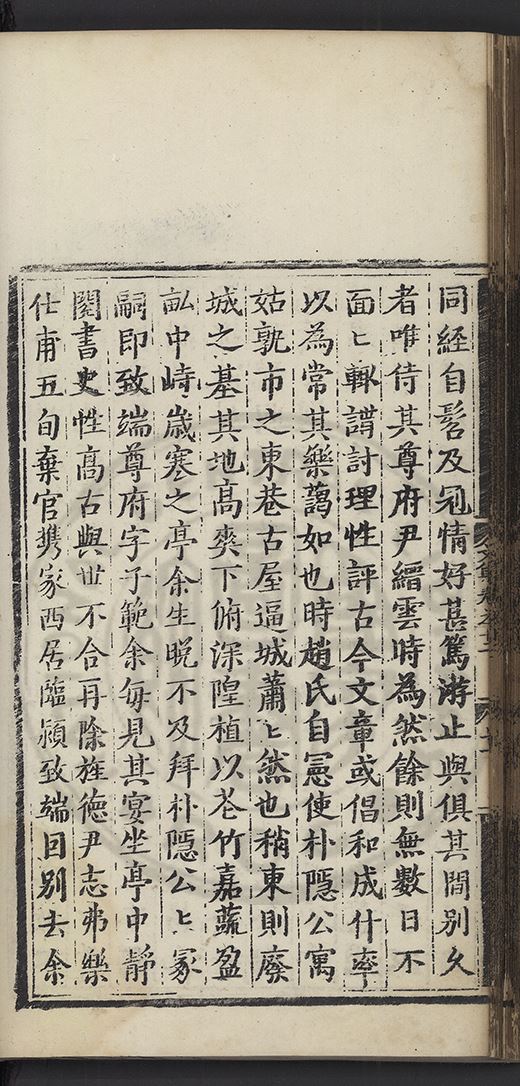 同経自髫及冠情好甚篤游止與俱其間別久
者唯侍其尊府尹縉雲時為然餘則無數日不
面〻輙講討理性評古今文章或倡和成什率
以為常其樂藹如也時趙氏自憲使朴隱公寓
姑孰市之東巷古屋逼城蕭〻然也稍東則廢
城之基其地髙爽下俯深隍植以花竹嘉蔬盈
畆中峙歲寒之亭余生晚不及拜朴隱公〻冢
嗣即致端尊府字子範余每見其宴坐亭中靜
閱書史性髙古與世不合再除旌德尹志弗樂
仕甫五旬棄官携家西居臨潁致端囙別去余